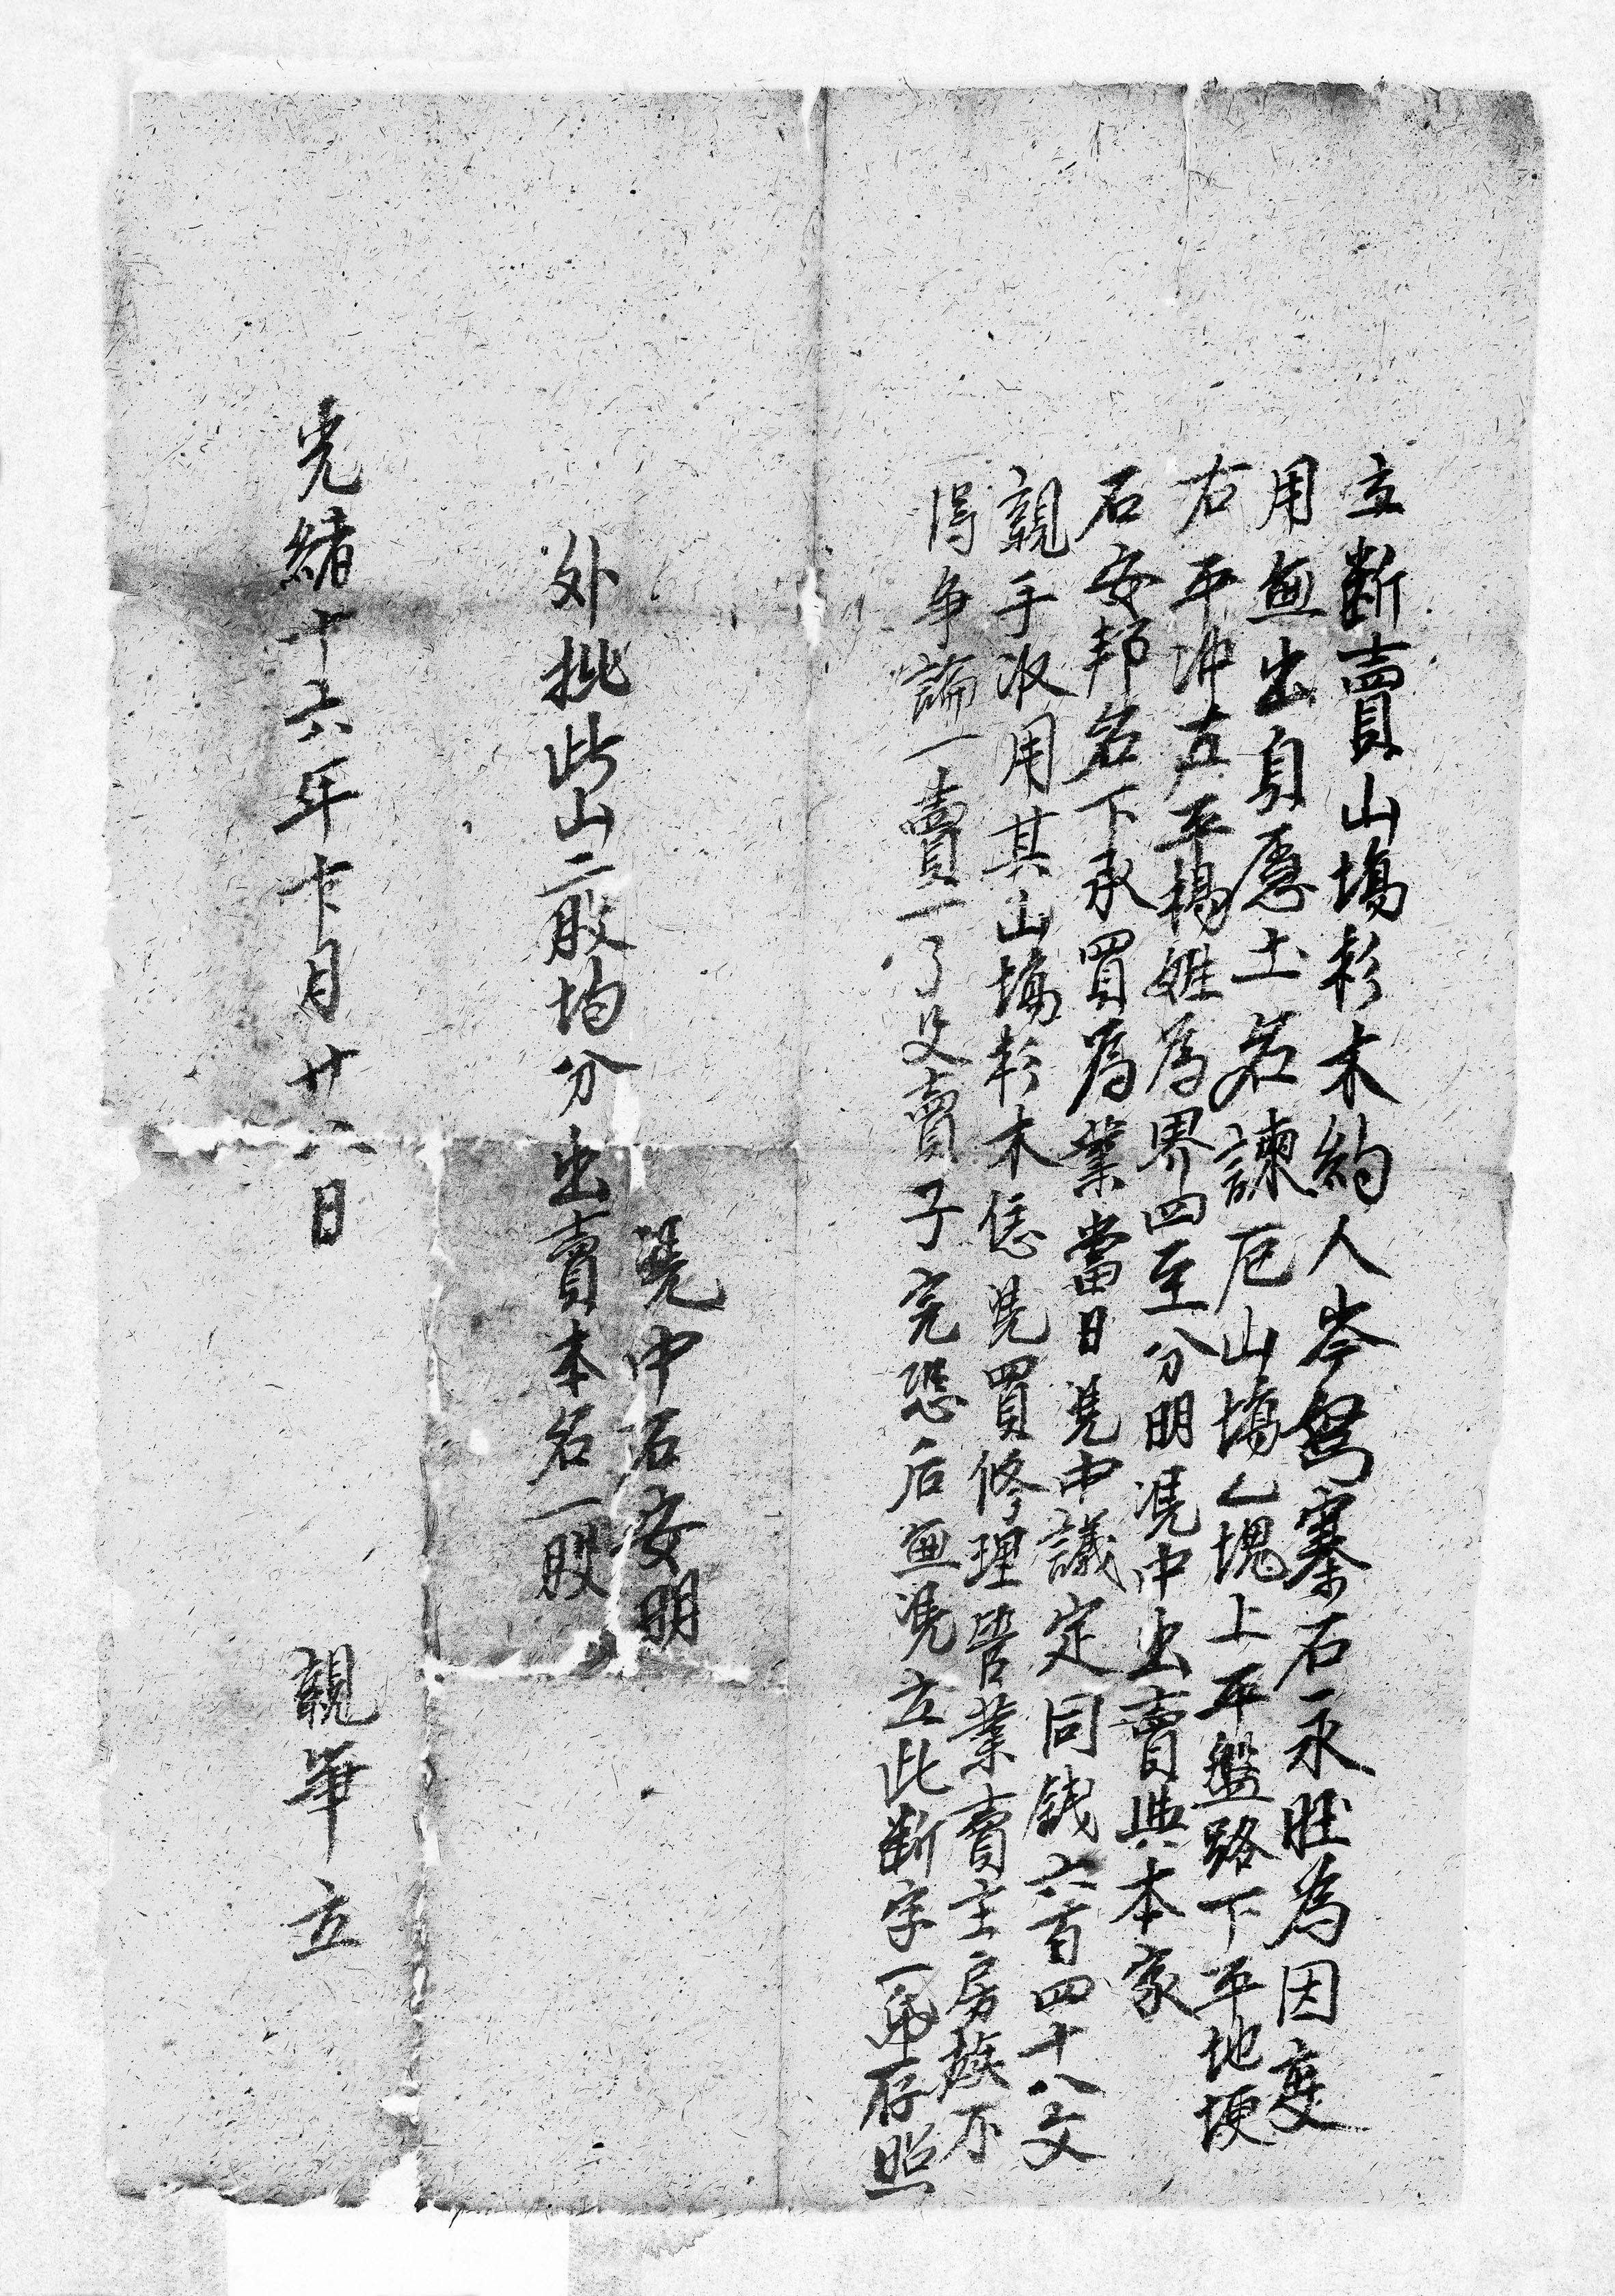 立断賣山塲杉木約人岑孥寨石永旺為因要
用無出自愿土名諫厄山塲乙塊上平盤路下平地埂
右平冲左平楊姓為界四至分明凴中出賣與本家
石安邦名下承買為業當日凴中議定同錢六百四十八文
親手收用其山塲杉木恁凴買修理管業賣主房族不
得争論一賣一了父賣子完恐后無凴立此断字一帋存照
凴中石安明
外批此山二股均分出賣本名一股
光緒十六年十月廿八日 親筆立